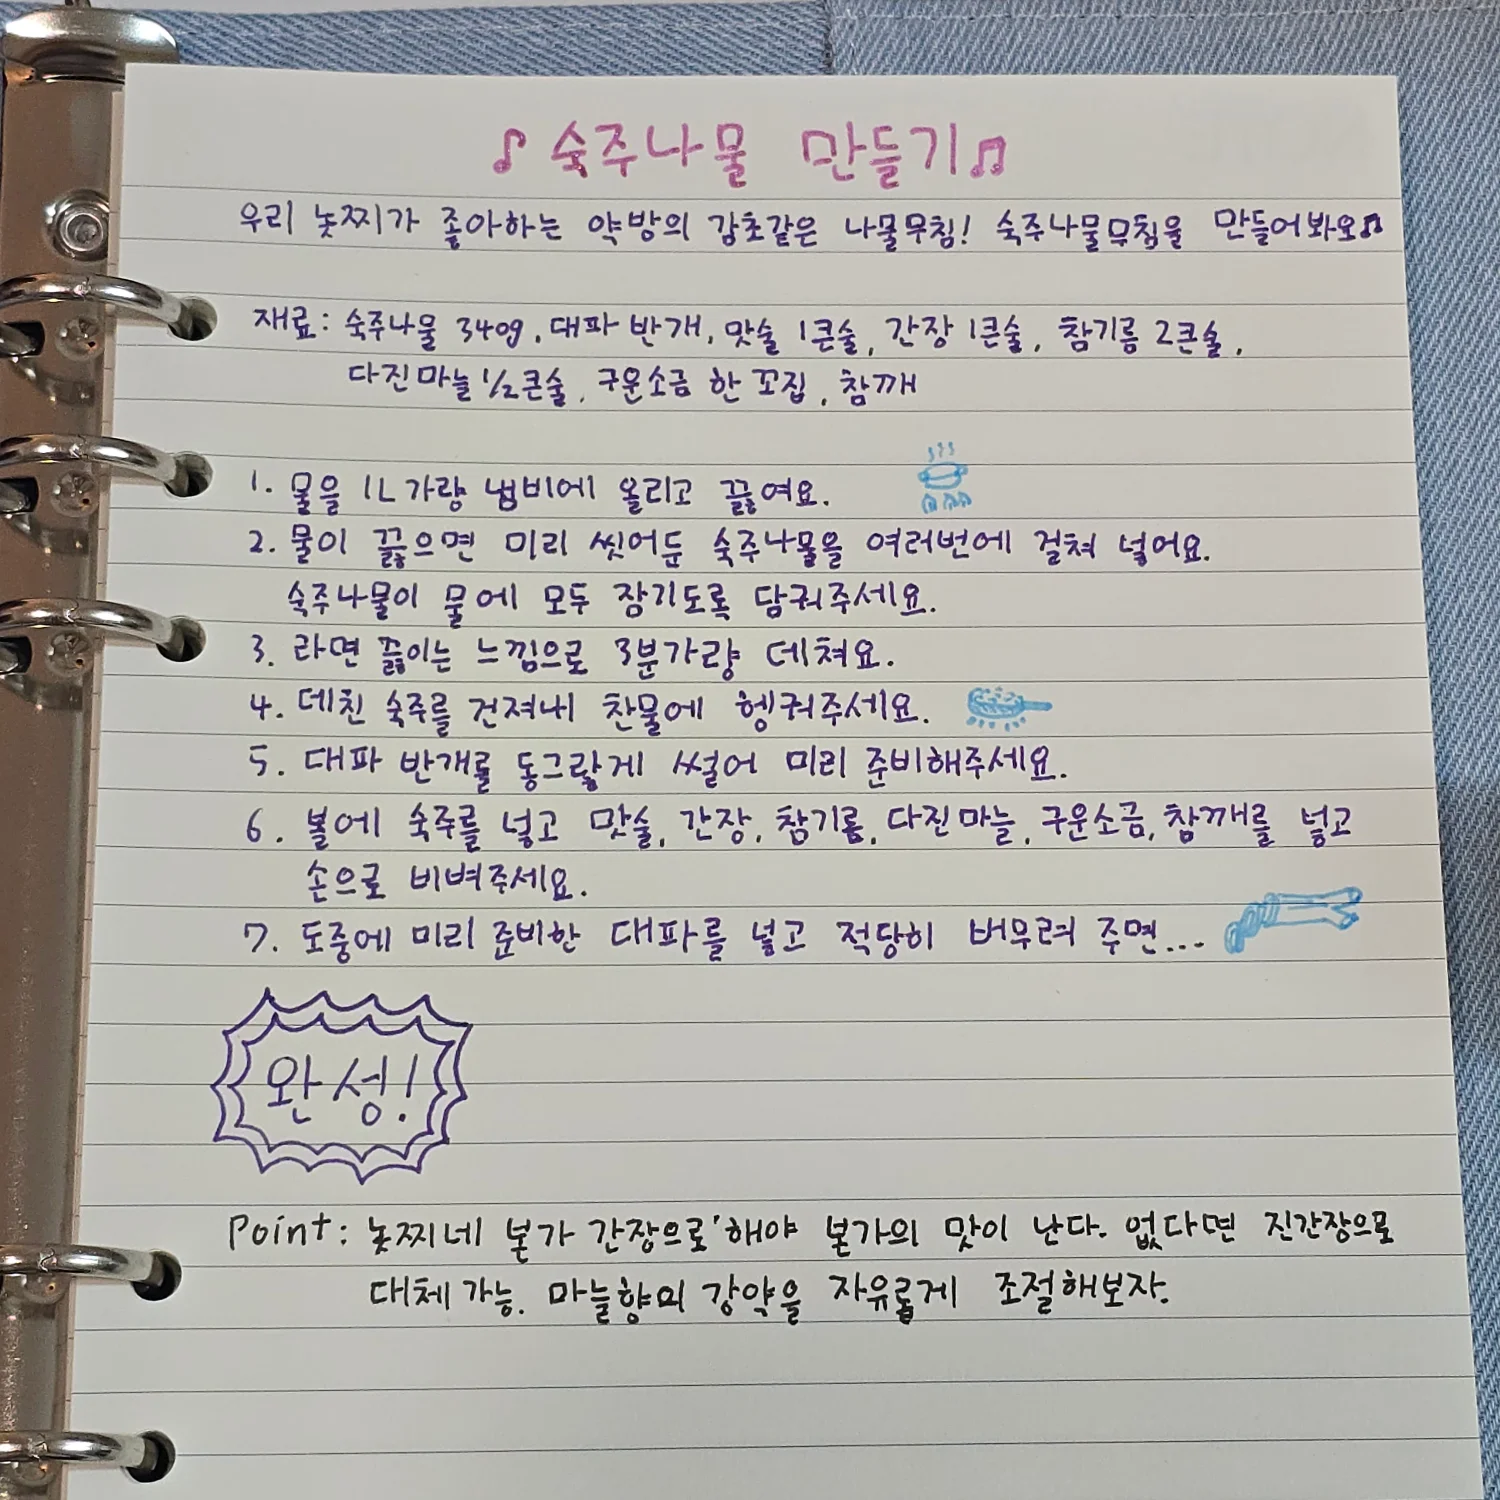 ♪ 숙주나물 만들기 ♫
우리 놋찌가 좋아하는 약방의 감초같은 나물무침! 숙주나물무침을 만들어봐요♫
재료: 숙주나물 340g, 대파 반개, 맛술 1큰술, 간장 1큰술, 참기름 2큰술,
다진마늘 1/2큰술, 구운소금 한 꼬집, 참깨
1. 물을 1L가량 냄비에 올리고 끓여요.
2. 물이 끓으면 미리 씻어둔 숙주나물을 여러번에 걸쳐 넣어요.
숙주나물이 물에 모두 잠기도록 담궈주세요.
3. 라면 끓이는 느낌으로 3분가량 데쳐요.
4. 데친 숙주를 건져내 찬물에 헹궈주세요.
5. 대파 반개를 동그랗게 썰어 미리 준비해주세요.
6. 볼에 숙주를 넣고 맛술, 간장, 참기름, 다진마늘, 구운소금, 참깨를 넣고
손으로 비벼주세요.
7. 도중에 미리 준비한 대파를 넣고 적당히 버무려 주면...
완성!
Point: 놋찌네 본가 간장으로 해야 본가의 맛이 난다. 없다면 진간장으로
대체 가능. 마늘향의 강약을 자유롭게 조절해보자.